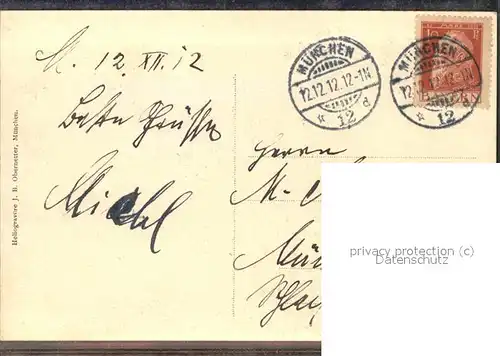 M. 12. XII. 12
Beste Grüsse
Michl
Heliogravüre J. B. Obernetter, München.
MÜNCHEN
12.12.12.12-1N
* 12 d
MÜNCHEN
12.12.12.12-1N
* 12
10 10
Herrn
M-
Mün
Schla
privacy protection (c)
Datenschutz